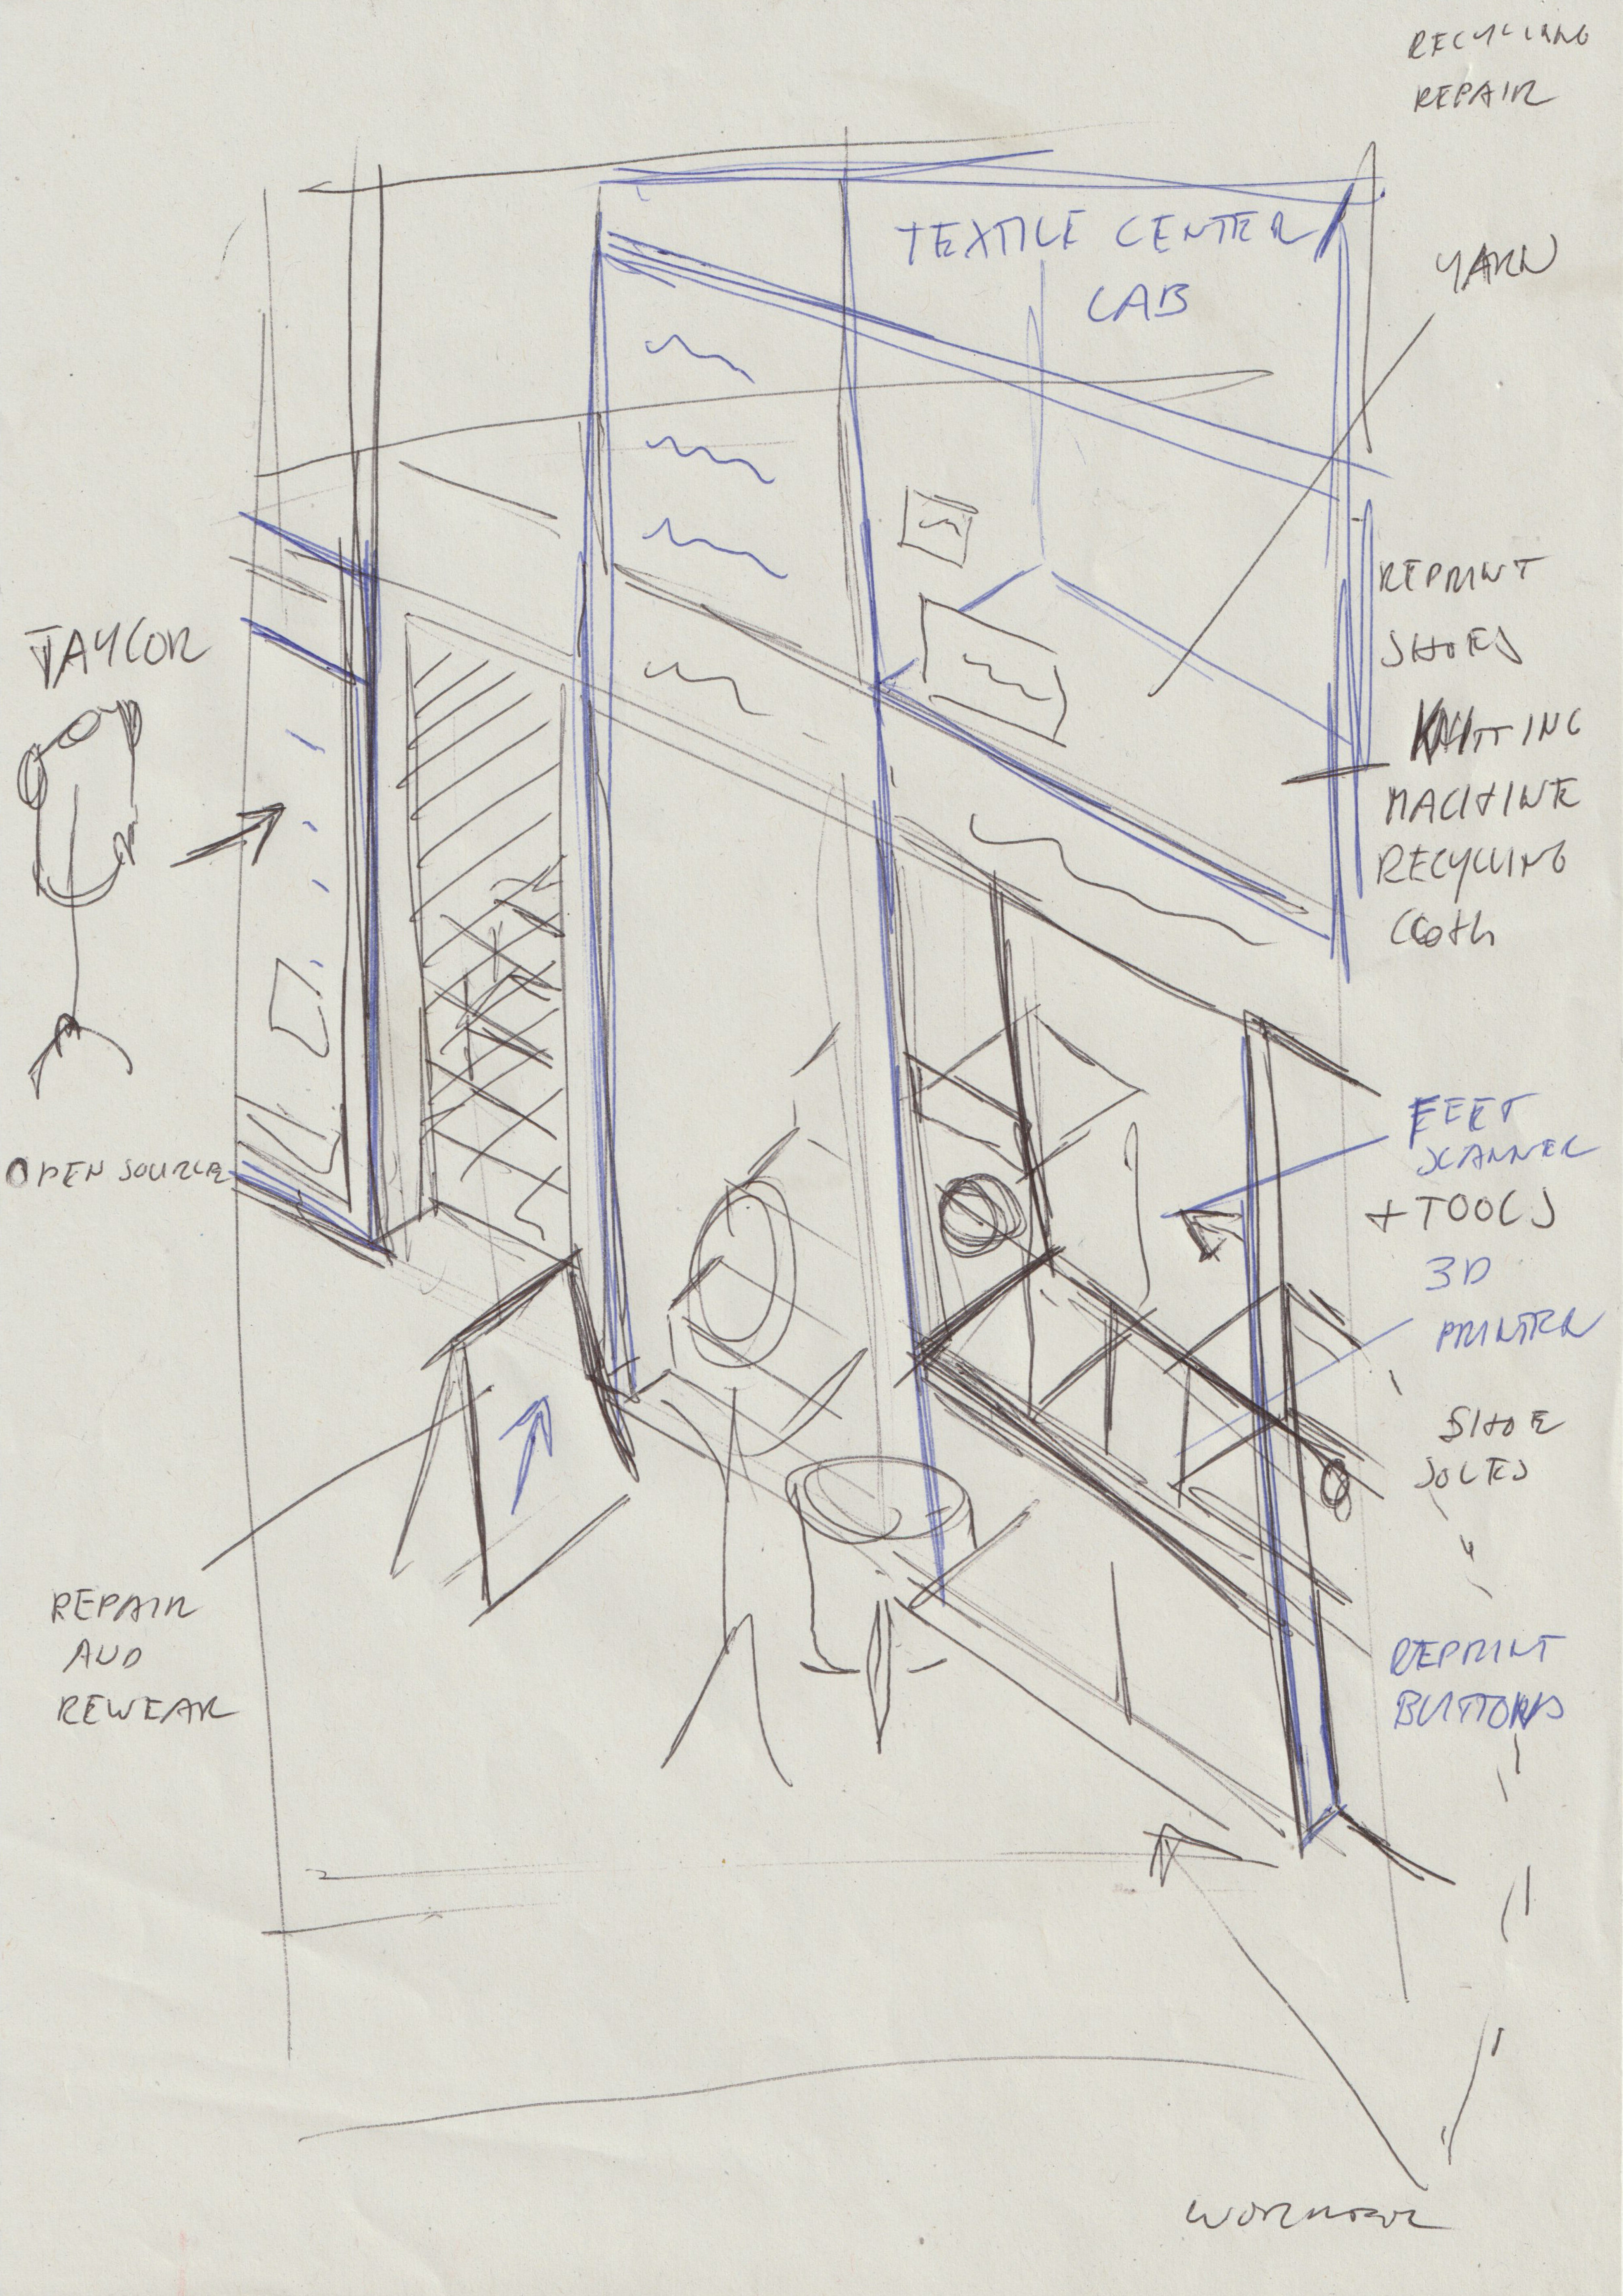 RECYCLING
REPAIR
TEXTILE CENTER
LAB
YARN
REPRINT
SHOES
KNITTING
MACHINE
RECYCLING
Cloth
TAYLOR
OPEN SOURCE
FEET
SCANNER
+ TOOLS
3D
PRINTER
SHOE
SOLES
REPAIR
AND
REWEAR
REPRINT
BUTTONS